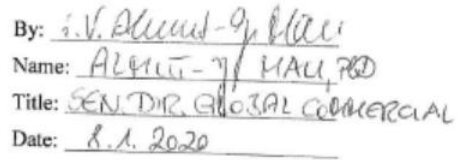 By: i.V.
Name: HALL, PhD
Title: SEN. DIR. GLOBAL COMMERCIAL
Date: 8.1.2020